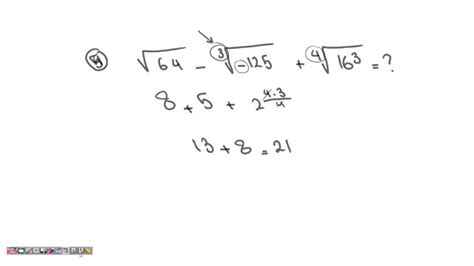 √64 - ∛-125 + ∜16³ = ?
8 + 5 + 2^(4·3/4)
13 + 8 = 21